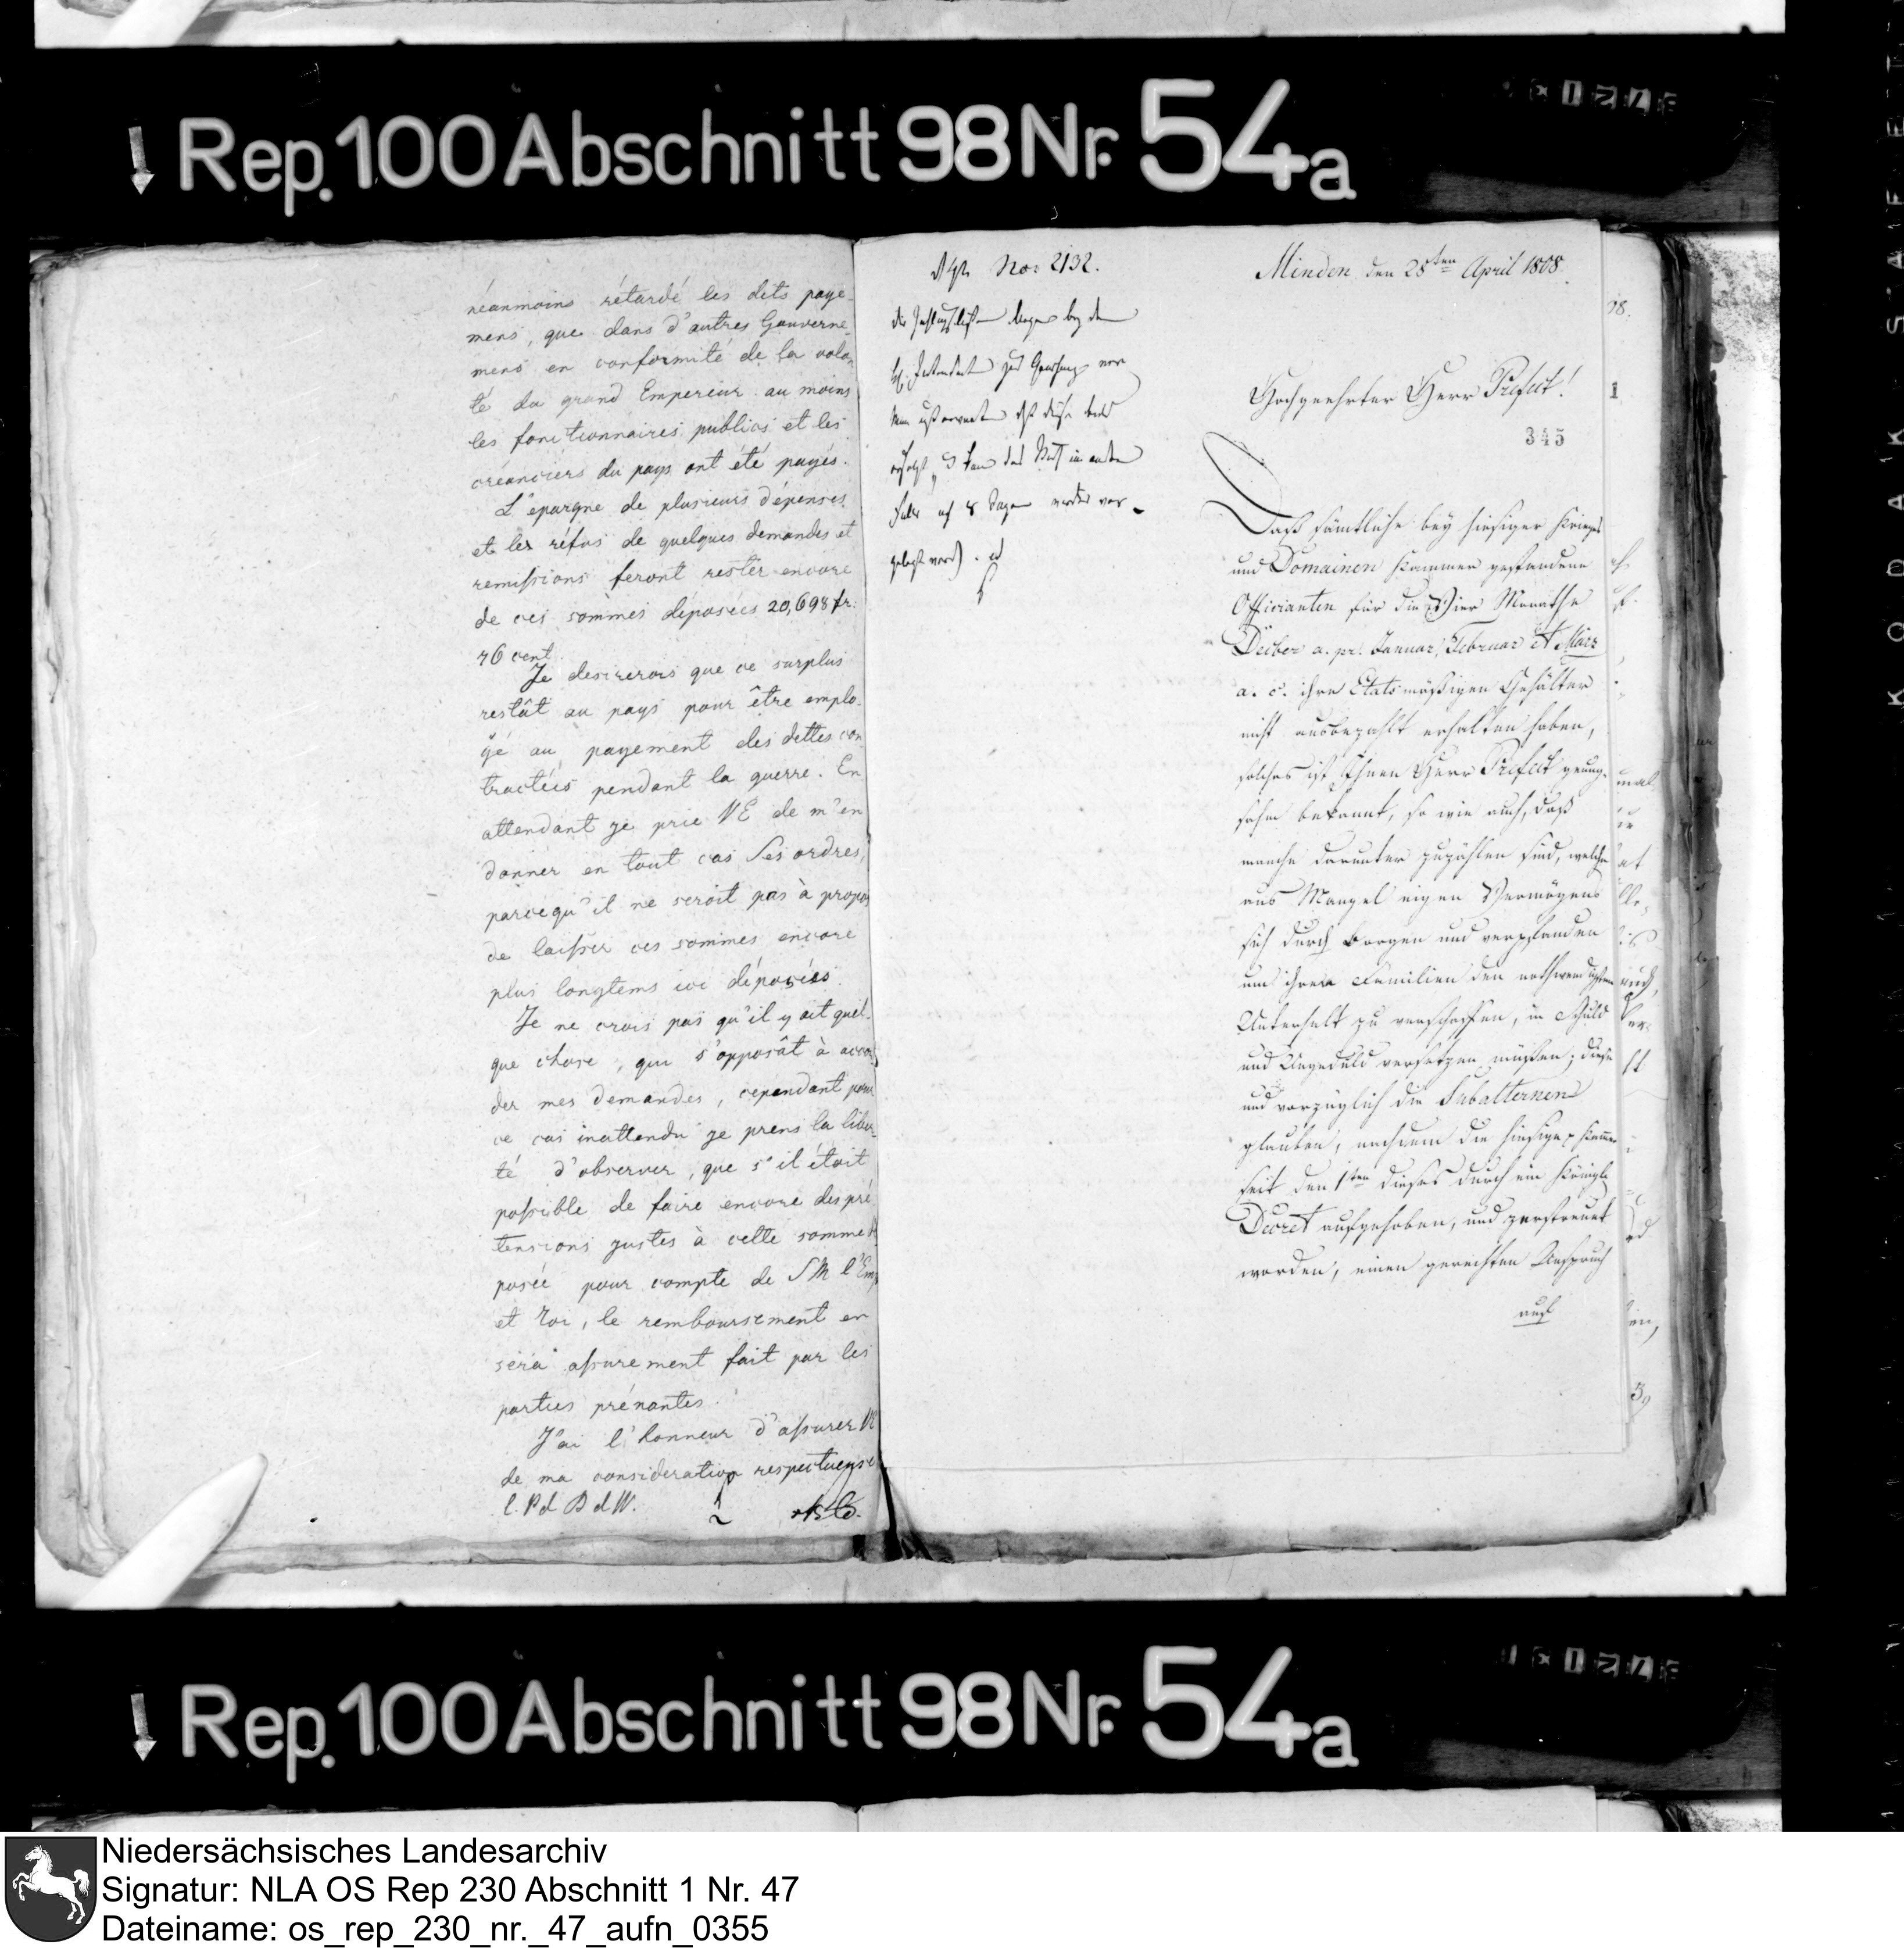 Rep. 100 Abschnitt 98 Nr. 54a
néanmoins rétardé les dits paye-
mens, que dans d'autres Gouverne-
mens en conformité de la volon-
té du grand Empereur au moins
les fonctionnaires publics et les
créanciers du pays ont été payés.
L'epargne de plusieurs dépenses
et les réfus de quelques demandes et
remissions feront rester encore
de ces sommes déposées 20,698 fr.
76 cent.
Je desirerois que ce surplus
restât au pays pour être emplo-
yé au payement des dettes con-
tractées pendant la guerre. En
attendant je prie VE de m'en
donner en tout cas Ses ordres,
parcequ'il ne seroit pas à propos
de laisser ces sommes encore
plus longtems ici déposées.
Je ne crois pas qu'il y ait quel-
que chose, qui s'opposât à accor-
der mes demandes, cependant pour
ce cas inattendu je prens la liber-
té d'observer, que s'il étoit
possible de faire encore des pré
tensions justes à cette somme dé
posée pour compte de SM l'Emp
et roi, le remboursement en
sera assurement fait par les
parties prénantes.
J'ai l'honneur d'assurer VE
de ma consideration respectueuse
l. P d D d W.
No: 2132.
Minden den 28ten April 1808.
Hochgeehrter Herr Préfect!
345
Daß sämtliche bey hiesiger Krieges
und Domainen Kammer gestandene
Officianten für die Vier Monathe
Decber a. pr. Januar, Februar et März
a. c. ihre Etatsmäßigen Gehälter
nicht ausbezahlt erhalten haben,
solches ist Ihnen Herr Préfect genug-
sahm bekannt, so wie auch, daß
manche darunter zuzählen sind, welche
aus Mangel eigen Vermögens
sich durch borgen und verpfanden
um ihren Familien den nothwendigsten
Unterhalt zu verschaffen, in Schuld
und Ungeduld versetzen müßen; diese
und vorzüglich die Subalternen
glauben, nachdem die hiesige Kammer
seit den 1ten dieses durch ein Königl.
Decret aufgehoben, und zerstreuet
worden, einen gerechten Anspruch
auf
Rep. 100 Abschnitt 98 Nr. 54a
KODAK SAFETY
Niedersächsisches Landesarchiv
Signatur: NLA OS Rep 230 Abschnitt 1 Nr. 47
Dateiname: os_rep_230_nr._47_aufn_0355